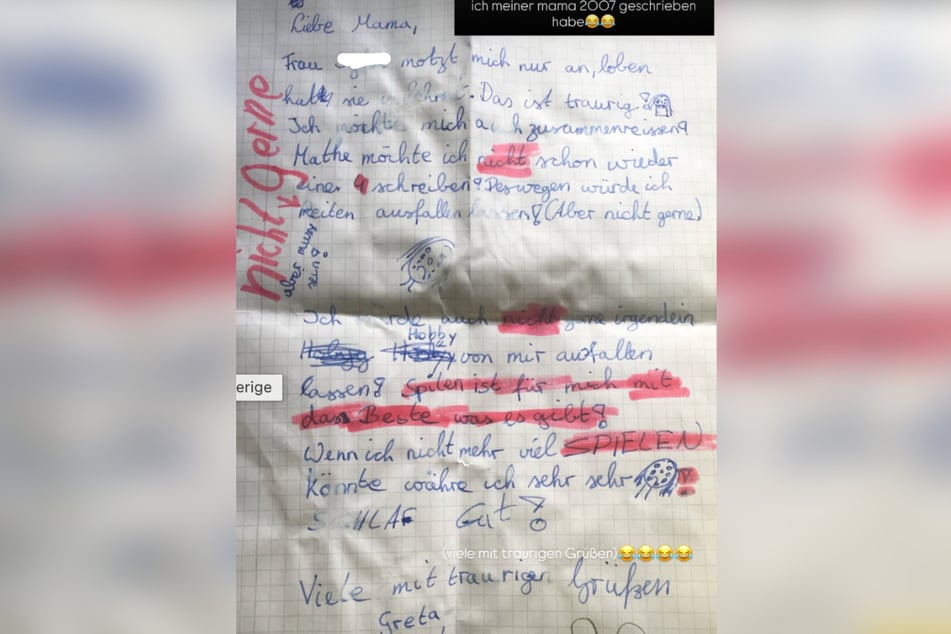 ich meiner mama 2007 geschrieben
habe😂😂
Liebe Mama,
Frau motzt mich nur an, loben
sie Das ist traurig!
Ich möchte mich auch zusammenreissen!
Mathe möchte ich nicht schon wieder
einen 4 schreiben! Deswegen würde ich
Reiten ausfallen lassen! (Aber nicht gerne)
nicht gerne
Ich würde auch nicht gerne irgendein
Hobby
von mir ausfallen
lassen! Spilen ist für mich mit
das Beste was es gibt!
Wenn ich nicht mehr viel SPIELEN
könnte währe ich sehr sehr !
SCHLAF Gut!
(viele mit traurigen Grüßen)😂😂😂😂
Viele mit traurigen Grüßen
Greta
erige